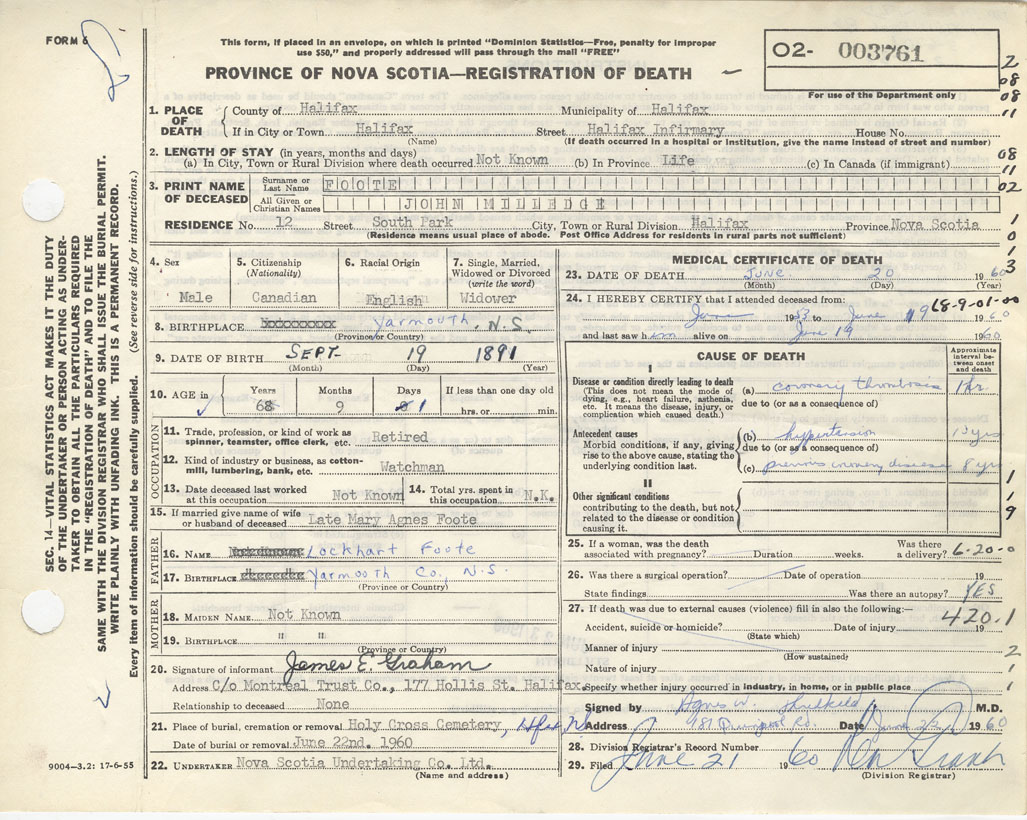 FORM 6
This form, if placed in an envelope, on which is printed "Dominion Statistics—Free, penalty for improper
use $50," and properly addressed will pass through the mail "FREE"
PROVINCE OF NOVA SCOTIA—REGISTRATION OF DEATH
02- 003761
For use of the Department only
2
08
08
11
08
11
02
1
0
1
3
SEC. 14—VITAL STATISTICS ACT MAKES IT THE DUTY
OF THE UNDERTAKER OR PERSON ACTING AS UNDER-
TAKER TO OBTAIN ALL THE PARTICULARS REQUIRED
IN THE "REGISTRATION OF DEATH" AND TO FILE THE
SAME WITH THE DIVISION REGISTRAR WHO SHALL ISSUE THE BURIAL PERMIT.
WRITE PLAINLY WITH UNFADING INK. THIS IS A PERMANENT RECORD.
Every item of information should be carefully supplied. (See reverse side for instructions.)
1. PLACE OF DEATH
County of Halifax Municipality of Halifax
If in City or Town Halifax Street Halifax Infirmary House No.
(Name) (If death occurred in a hospital or institution, give the name instead of street and number)
2. LENGTH OF STAY (in years, months and days)
(a) In City, Town or Rural Division where death occurred Not Known (b) In Province Life (c) In Canada (if immigrant)
3. PRINT NAME OF DECEASED
Surname or Last Name FOOTE
All Given or Christian Names JOHN MILLEDGE
RESIDENCE No. 12 Street South Park City, Town or Rural Division Halifax Province Nova Scotia
(Residence means usual place of abode. Post Office Address for residents in rural parts not sufficient)
4. Sex
Male
5. Citizenship (Nationality)
Canadian
6. Racial Origin
English
7. Single, Married, Widowed or Divorced (write the word)
Widower
8. BIRTHPLACE Yarmouth, N.S.
(Province or Country)
9. DATE OF BIRTH SEPT. 19 1891
(Month) (Day) (Year)
10. AGE in Years Months Days If less than one day old
68 9 1 hrs. or min.
OCCUPATION
11. Trade, profession, or kind of work as spinner, teamster, office clerk, etc. Retired
12. Kind of industry or business, as cotton-mill, lumbering, bank, etc. Watchman
13. Date deceased last worked at this occupation Not Known
14. Total yrs. spent in this occupation N.K.
15. If married give name of wife or husband of deceased Late Mary Agnes Foote
FATHER
16. NAME Lockhart Foote
17. BIRTHPLACE Yarmouth Co., N.S.
(Province or Country)
MOTHER
18. MAIDEN NAME Not Known
19. BIRTHPLACE " "
(Province or Country)
20. Signature of informant James E. Graham
Address C/o Montreal Trust Co., 177 Hollis St. Halifax.
Relationship to deceased None
21. Place of burial, cremation or removal Holy Cross Cemetery, Hfax, N.S.
Date of burial or removal June 22nd. 1960
22. UNDERTAKER Nova Scotia Undertaking Co. Ltd.
(Name and address)
9004-3.2: 17-6-55
MEDICAL CERTIFICATE OF DEATH
23. DATE OF DEATH June 20 1960
(Month) (Day) (Year)
24. I HEREBY CERTIFY that I attended deceased from: 68-9-01-00
June 1953 to June 19 1960
and last saw him alive on June 19 1960
CAUSE OF DEATH
Approximate interval between onset and death
I
Disease or condition directly leading to death
(This does not mean the mode of dying, e.g., heart failure, asthenia, etc. It means the disease, injury, or complication which caused death.)
(a) coronary thrombosis 1 hr.
due to (or as a consequence of)
Antecedent causes
Morbid conditions, if any, giving rise to the above cause, stating the underlying condition last.
(b) hypertension yrs
due to (or as a consequence of)
(c) previous coronary disease 8 yrs
II
Other significant conditions
contributing to the death, but not related to the disease or condition causing it.
1
1
9
25. If a woman, was the death associated with pregnancy? Duration weeks. Was there a delivery? 6-20-0
26. Was there a surgical operation? Date of operation 19
State findings Was there an autopsy? YES
27. If death was due to external causes (violence) fill in also the following:— 420.1
Accident, suicide or homicide? Date of injury 19
(State which)
Manner of injury 2
(How sustained)
Nature of injury 1
Specify whether injury occurred in industry, in home, or in public place 1
Signed by Agnes W. M.D.
Address 981 Rd. Date June 1960
28. Division Registrar's Record Number
29. Filed June 21 1960
(Division Registrar)